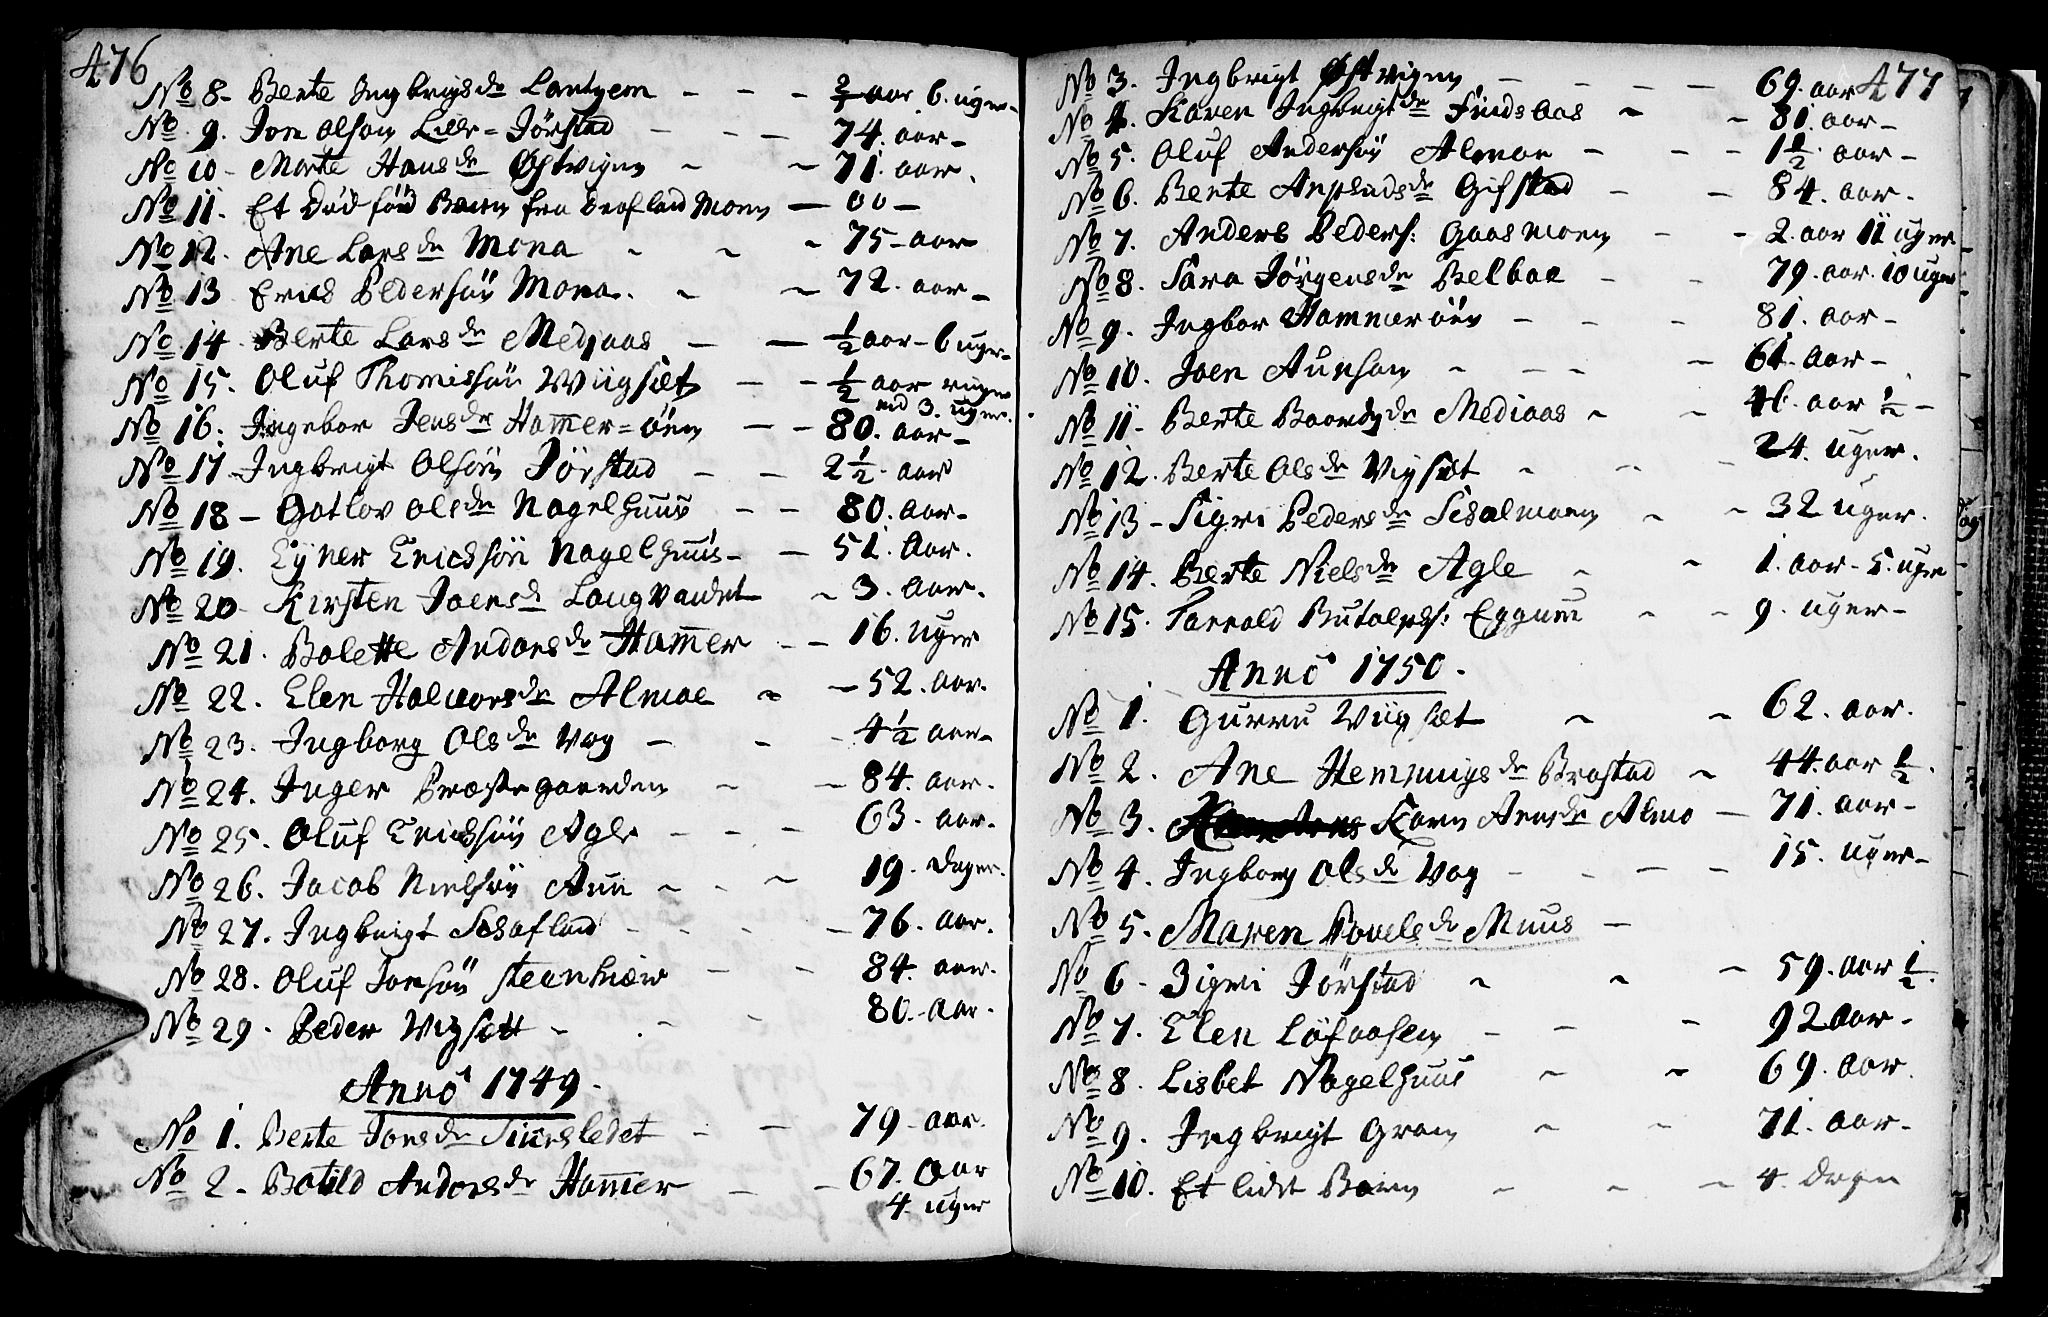 476
No 8 - Berte Ingbrigsdr Lantzem - - - 2/7 aar 6. uger -
No 9. Jon Olsøn Lille = Jørstad - - - 74. aar -
No 10 - Marte Hansdr Østvigen - - 71. aar.
No 11. Et Død fød Barn fra Snofland Moen - 00 -
No 12. Ane Larsdr Mona - - - 75 - aar
No 13 Erics Pedersøn Mona. - - 72. aar -
No 14 - Berte Larsdr Mediaas - - 1/2 aar - 6 uger -
No 15. Oluf Thomissøn Wiigsæt - - 1/2 aar
ved 3. uger.
No 16. Ingebor Jensdr Ham̅er = öen - - 80. aar -
No 17 Ingbrigt Olsøn Jørstad - - 2 1/2. aar
No 18 - Gotlov Olsdr Nagelhuus - - 80. aar -
No 19. Eyner Ericksøn Nagelhuus - - 51. Aar.
No 20 - Kirsten Joensd Langvandet - 3. aar.
No 21. Bolette Andorsdr Ham̅er - - 16. uger
No 22. Elen Halvorsdr Almoe - - 52. aar.
No 23. Ingborg Olsdr Vog - - - 4 1/2 aar -
No 24. Inger Præstegaarden - - 84. aar.
No 25. Oluf Ericksøn Agle - - - 63. aar.
No 26. Jacob Nielsøn Aun - - - 19. Dager.
No 27. Ingbrigt Snofland - - - - 76. aar.
No 28. Oluf Jonsøn Steenkiær - - 84. aar.
No 29. Peder Vigsett - - - 80. - aar.
Anno 1749.
No 1. Berte Jonsdr Sursledet - - 79 - aar.
No 2 - Botild Andorsdr Ham̅er - - 67. Aar
4. uger
477
No 3. Ingbrigt Østvigen - - - 69. aar
No 4. Karen Ingbrigtdr Findsaas - - 81. aar -
No 5. Oluf Andersøn Almoe - - - 1 1/2. aar -
No 6. Berte Anfindsdr Gifstad - - 84. aar.
No 7. Anders Peders: Gaasmoen - - 2. aar 11 uger
No 8. Sara Jørgensdr Belboe - - 79. aar. 10 uger
No 9. Ingbor Hammerøen - - - 81. aar -
No 10. Joen Aunsøn - - - - 61. aar -
No 11 - Berte Baardsdr Mediaas - - 46. aar 1/2 -
No 12. Berte Olsdr Vigsæt - - - 24. uger.
No 13 - Sigri Pedersdr Sesalmoen - - 32 uger.
No 14. Berte Nielsdr Agle - - 1. aar - 5. uger
No 15. Torrold Butolfs: Eggum - - 9. uger -
Anno 1750.
No 1. Gurru Wiigsæt - - 62. aar.
No 2. Ane Hemmingsdr Brostad - 44. aar 1/2.
No 3. Karn Arnsdr Almo - 71. aar -
No 4. Ingborg Olsdr Vog - - - - 15. uger -
No 5. Maren Povelsdr Muus -
No 6 - Sigri Jørstad - - - 59. aar 1/2.
No 7. Elen Løfaasen - - - 92 aar -
No 8. Lisbet Nagelhuus - - 69. aar.
No 9. Ingbrigt Gran - - 71. aar -
No 10. Et lidet Barn - - - 4. Dage